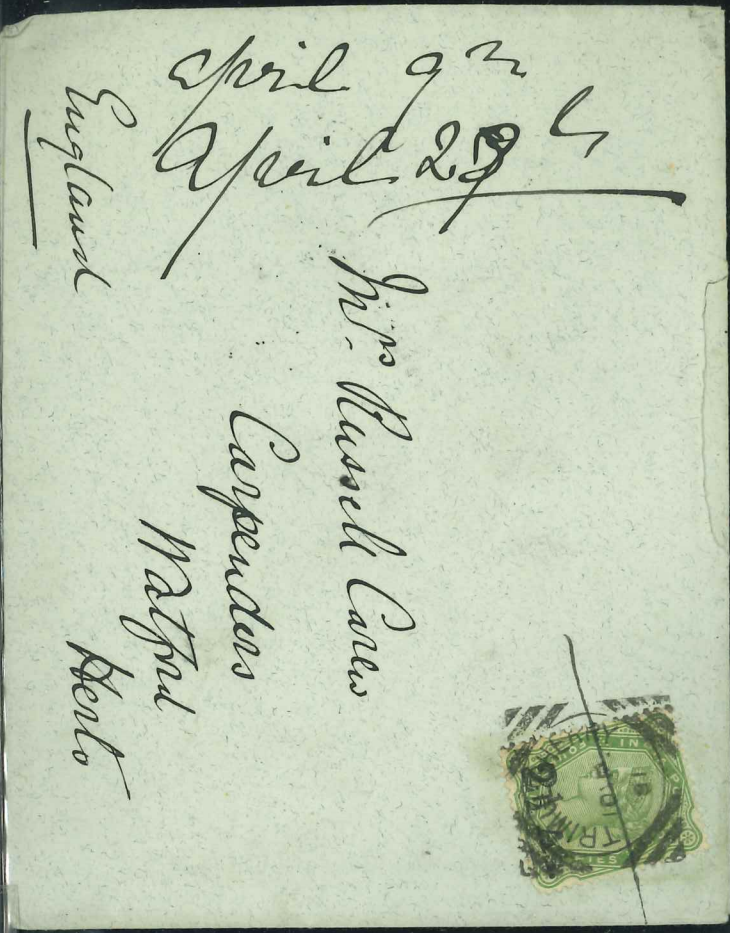 April 9th
April 23th
Mrs. Russell Carew
Carpenders
Watford
Herts
England
18
TRIMUL
2½